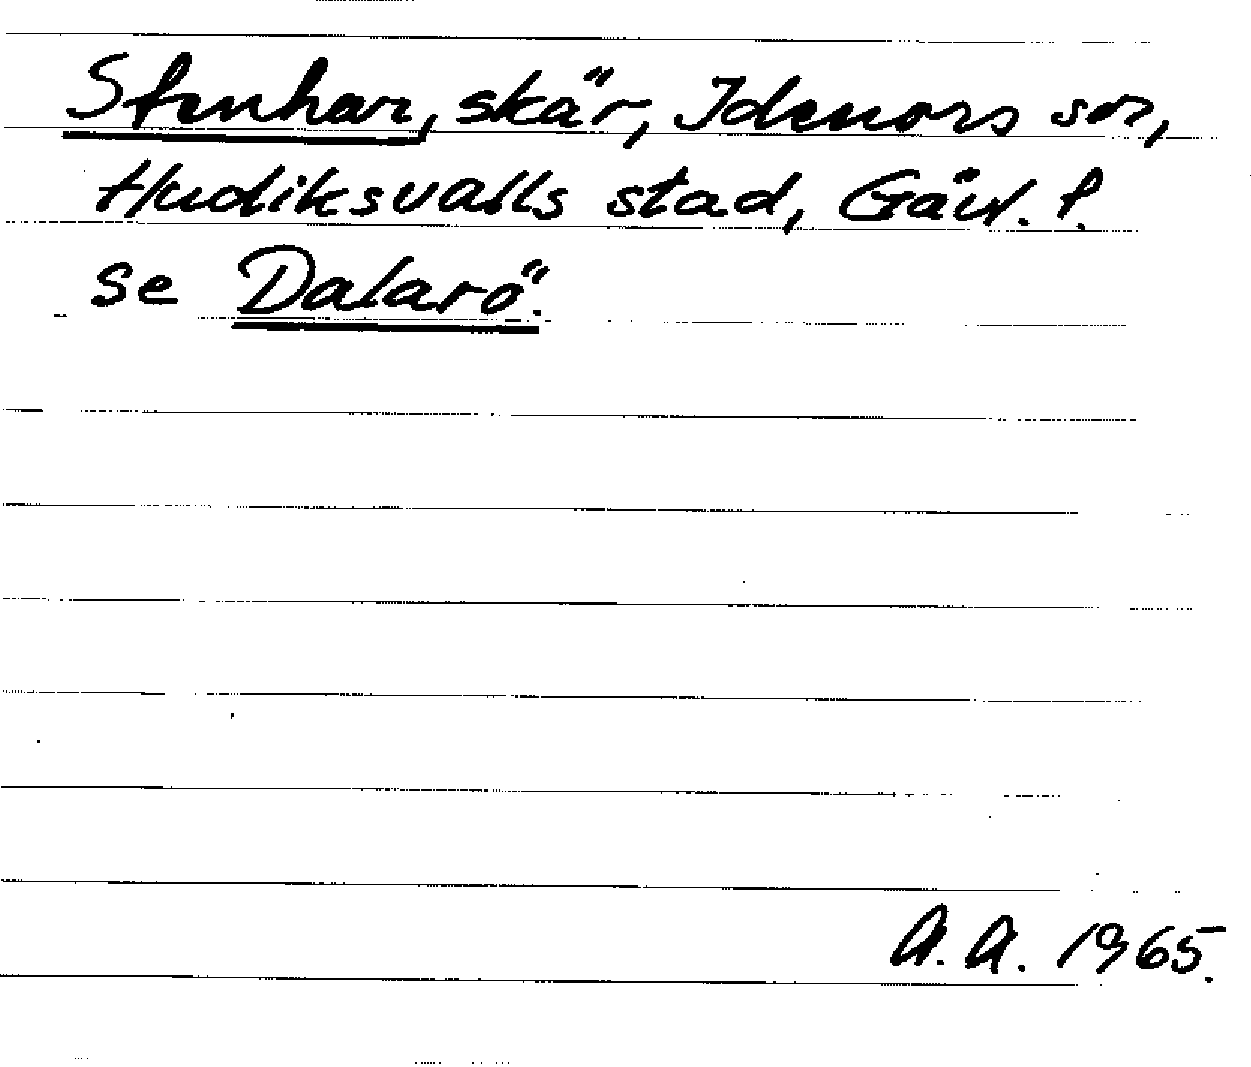 Stenhar, skär, Idenors sn,
Hudiksvalls stad, Gävl. l.
se Dalarö.
A.A. 1965.